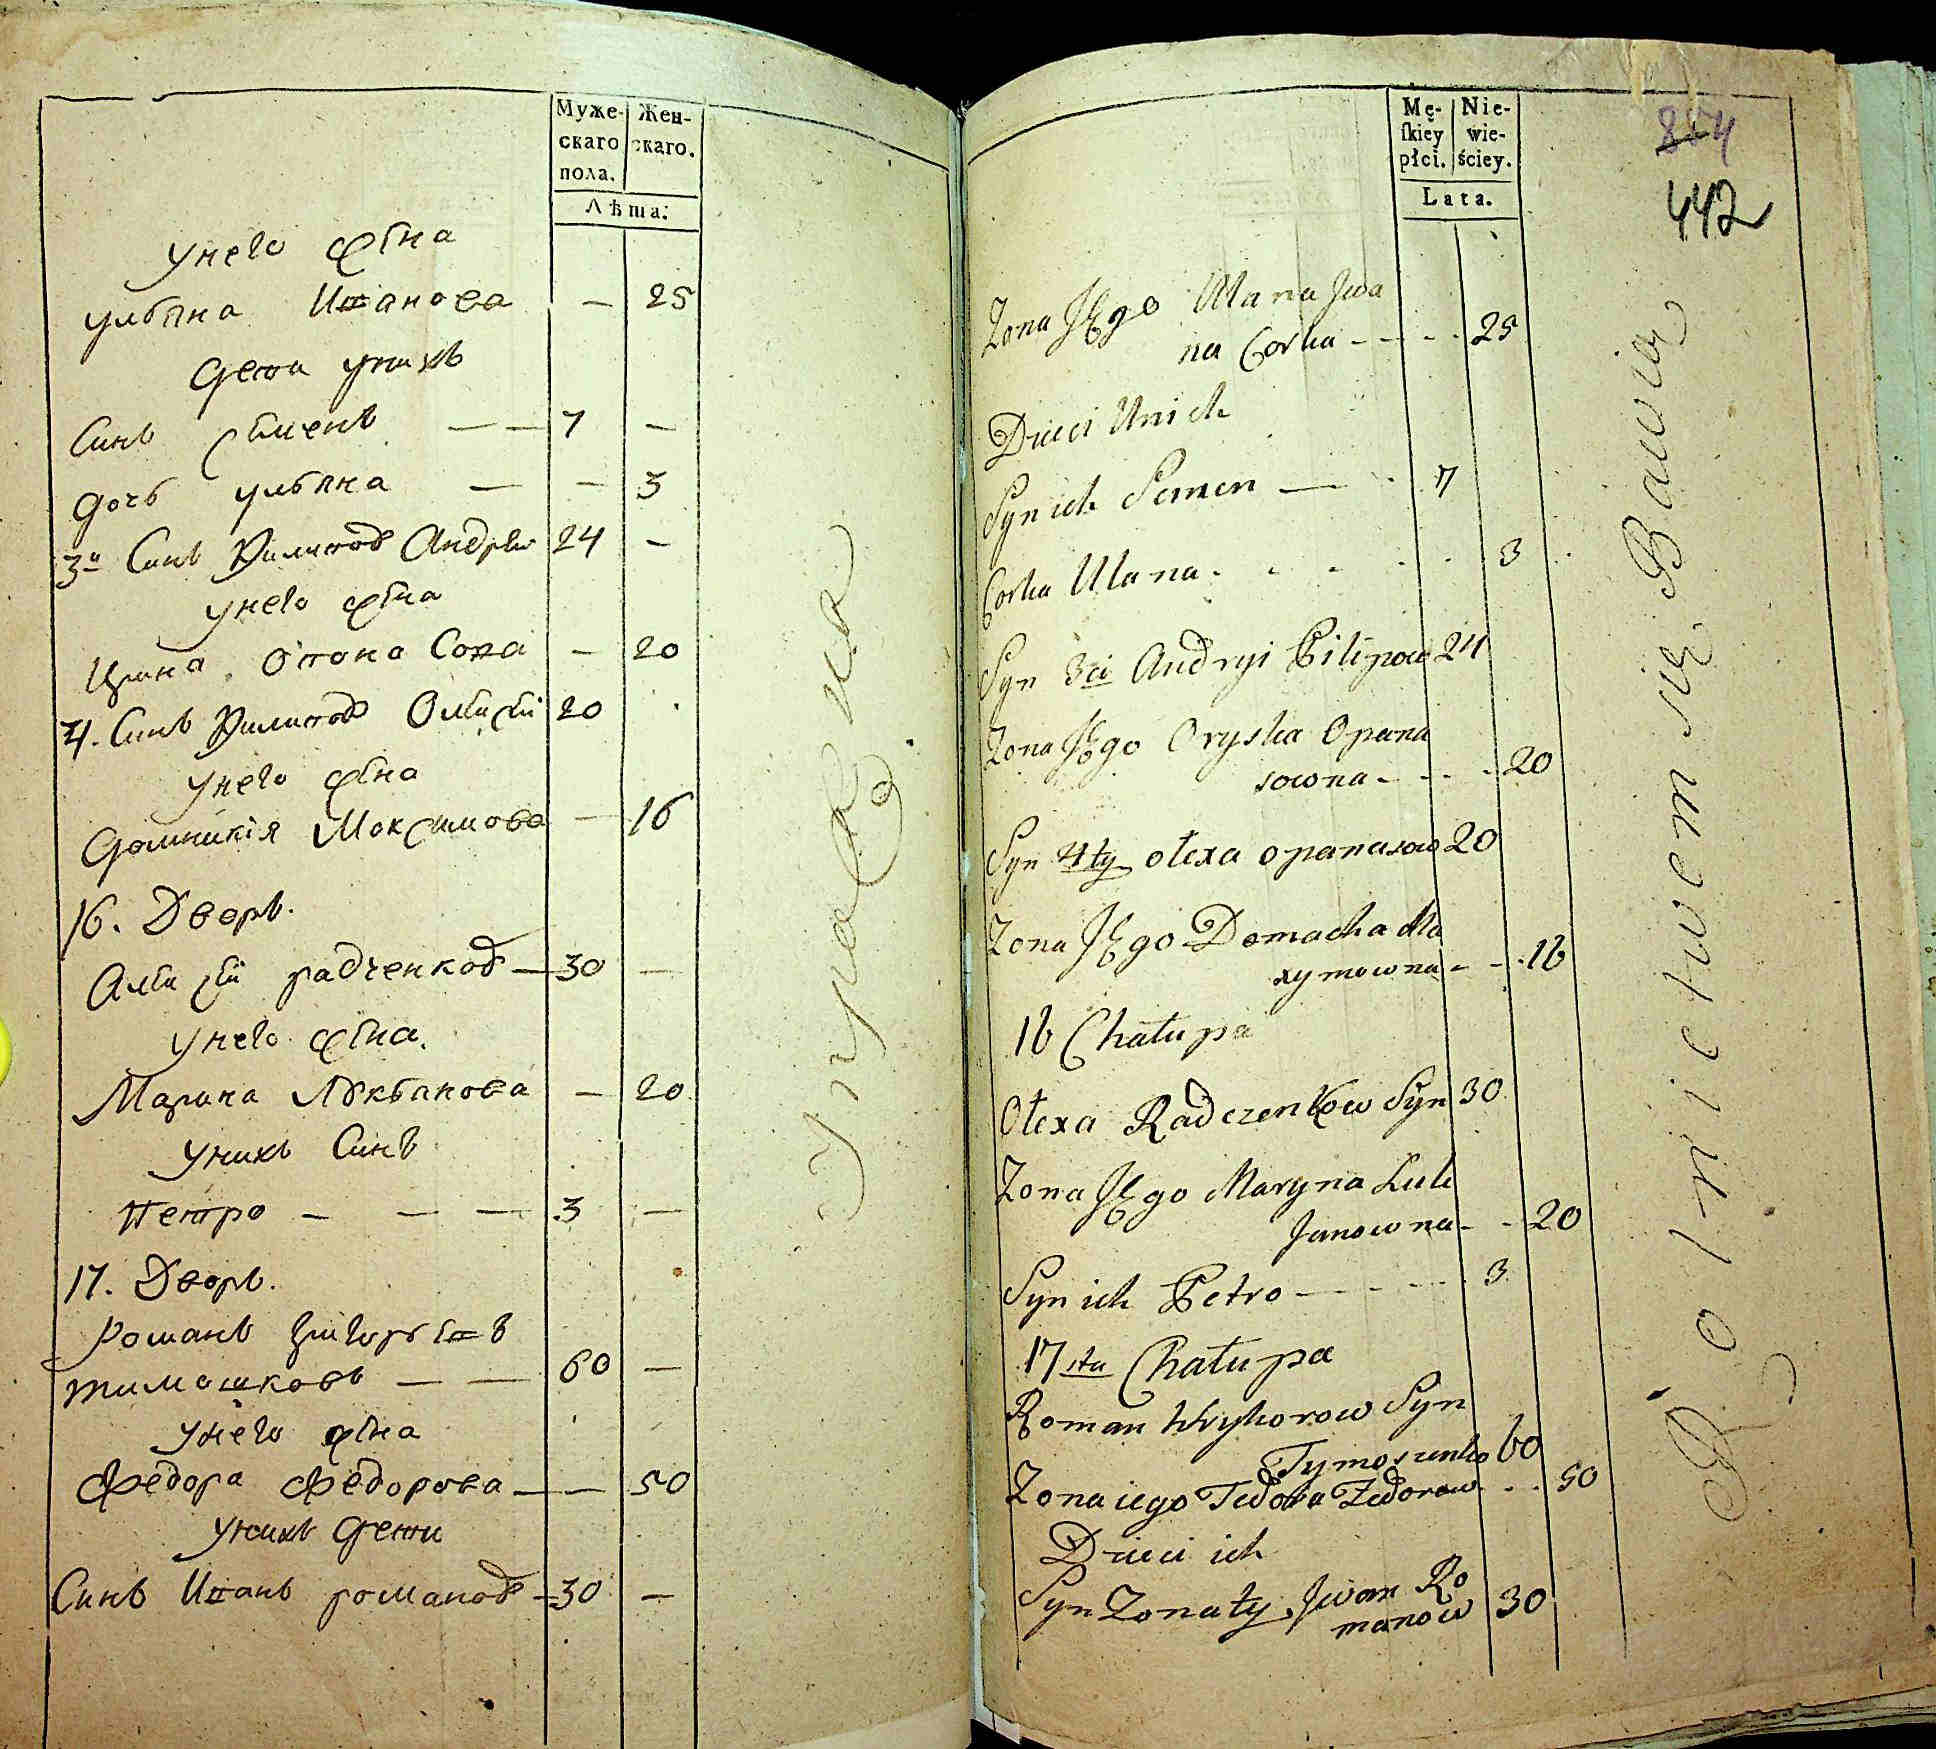 Муже-
скаго
пола.
Жен-
скаго.
Лѣта:
Унего жена
ульяна Иванова — 25
Дети унихъ
Синъ Семенъ — — 7 —
Дочь ульяна — — 3
3й Синъ Филиповъ Андрей 24 —
Унего жена
Ирина Опана Сова — 20
4. Синъ Филиповъ Олексей 20
Унего жена
Домникія Максимова — 16
16. Дворъ.
Алексей радченковъ — 30 —
Унего жена.
Марина Лукьянова — 20
Унихъ Синъ
Петро — — — 3 —
17. Дворъ.
Романъ Григорьевъ
тимошковъ — — 60 —
Унего жена
Федора Федорова — — 50
Унихъ Дети
Синъ Иванъ романовъ — 30 —
Mę-
skiey
płci.
Nie-
wie-
ściey.
Lata.
442
Zona JEgo Ulana Jwa
na Corka - - - - 25
Dzieci Unich
Syn ich Semen — - 7
Corka Ulana - - - - - 3
Syn 3ci Andryi Pilipow 24
Zona JEgo Oryska Opana
sowna - - - - 20
Syn 4ty Ołexa opanasow 20
Zona JEgo Domacha Ma
xymowna - - - 16
16 Chałupa
Ołexa Radczenkow Syn 30
Zona JEgo Maryna Luk
Janowna - - 20
Syn ich Petro - - - - - 3
17sta Chałupa
Roman Hryhorow Syn
Tymoszenko 60
Zona iego Fedora Fedorow - - - 50
Dzieci ich
Syn Zonaty Jwan Ro
manow 30
Rolnictwem się Bawią